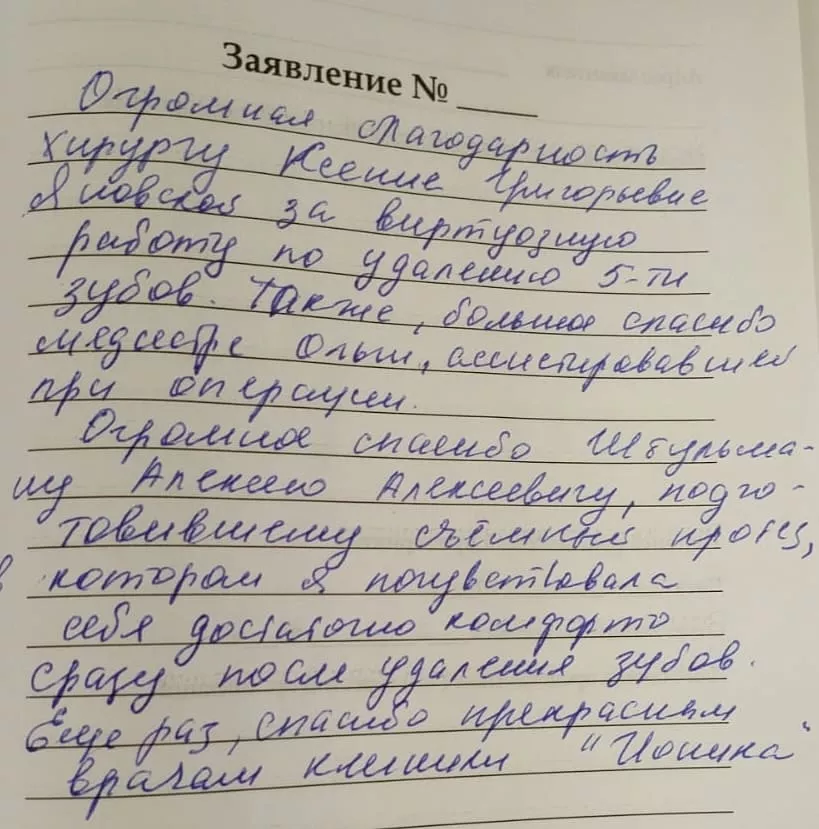 Заявление № ____
Огромная благодарность
хирургу Ксение Григорьевне
Яновской за виртуозную
работу по удалению 5-ти
зубов. Также, большое спасибо
медсестре Ольги, ассистировавшей
при операции.
Огромное спасибо Штульма-
ну Алексею Алексеевичу, подго-
товившему съёмный протез,
в котором я почувствовала
себя достаточно комфортно
сразу после удаления зубов.
Еще раз, спасибо прекрасным
врачам клиники "Ионика"